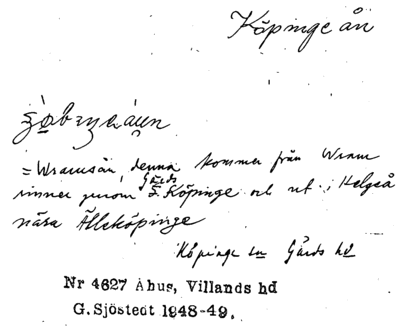 Köpinge ån
= Vramsån, denna kommer från Vram
rinner genom Gärds Köpinge och ut i Helgeå
nära Ålleköpinge
Köpinge sn Gärds hd
Nr 4627 Åhus, Villands hd
G. Sjöstedt 1948-49.